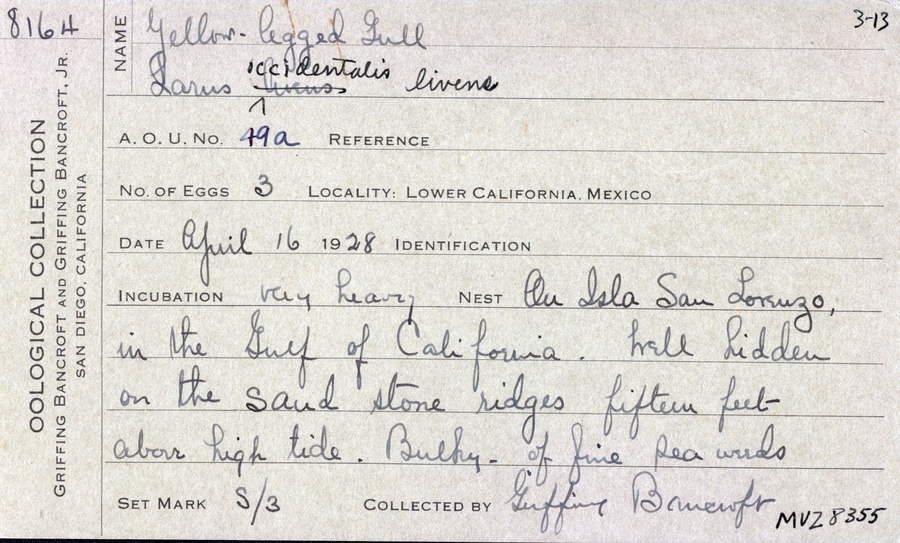 8164
3-13
NAME Yellow-legged Gull
occidentalis
Larus livens livens
A. O. U. No. 49a REFERENCE
No. of Eggs 3 LOCALITY: LOWER CALIFORNIA, MEXICO
DATE April 16 1928 IDENTIFICATION
INCUBATION very heavy NEST On Isla San Lorenzo,
in the Gulf of California. Well hidden
on the sand stone ridges fifteen feet
above high tide. Bulky - of fine sea weeds
SET MARK S/3 COLLECTED BY Griffing Bancroft
MVZ 8355
OOLOGICAL COLLECTION
GRIFFING BANCROFT AND GRIFFING BANCROFT, JR.
SAN DIEGO, CALIFORNIA